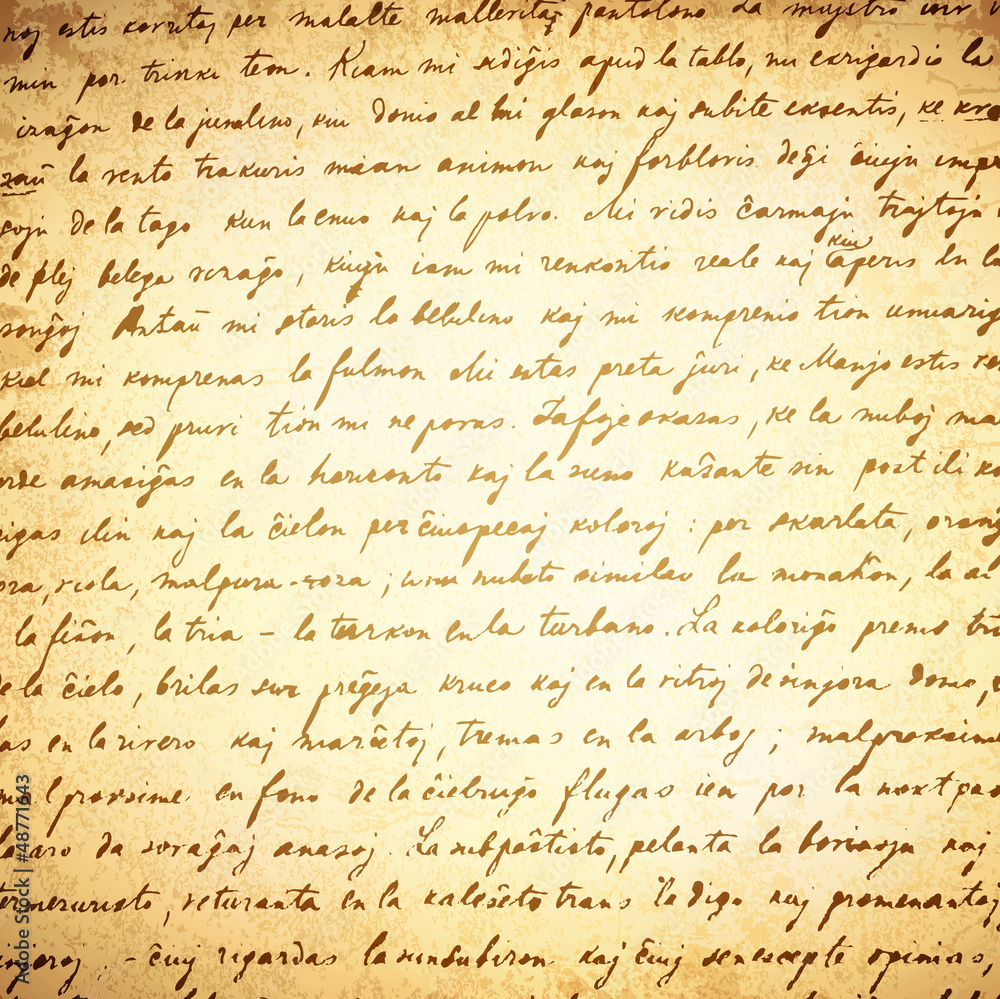 noj estis korritaj per malalte pantolono da
min por trinki teon. Kiam mi sidiĝis apud la tablo, mi ekrigardis la
vizaĝon de la junulino, kiu donis al mi glason kaj subite eksentis, ke
la vento trakuris mian animon kaj forbloris ĉiujn impre
sojn de la tago kun la enuo kaj la polvo. Mi vidis ĉarmajn trajtojn
de plej belega vizaĝo, kiujn iam mi renkontis reale kaj kiu aperis en la
sonĝoj Antaŭ mi staris la belulino kaj mi komprenis tion unuavig
kiel mi komprenas la fulmon Mi estas preta ĵuri, ke Manjo estis
belulino, sed pruvi tion mi ne povas. Iafoje okazas, ke la nuboj
orde amasiĝas en la horizonto kaj la suno kaŝante sin post ili
igas ilin kaj la ĉielon per ĉiuspecaj koloroj : per skarlata, oranĝ
viola, malpura-roza ; unu nubeto similas la monaĥon, la al
la fiŝon, la tria – la turkon en la turbano. La koloriĝo premis
de la ĉielo, brilas sur preĝeja kruco kaj en la vitroj de sinjora domo,
las en la rivero kaj marĉetoj, tremas en la arboj ; malproksime
malproksime en fono de la ĉielruĝo flugas ien por la noxtpas
da sovaĝaj anasoj. La subpaŝtisto, pelanta la bovinojn kaj
termezuristo, veturanta en la kaleŝeto trans la digo kaj promenantaj
– ĉiuj rigardas la sunsubiron kaj ĉiuj senescepte opinias,
Adobe Stock | #48771643